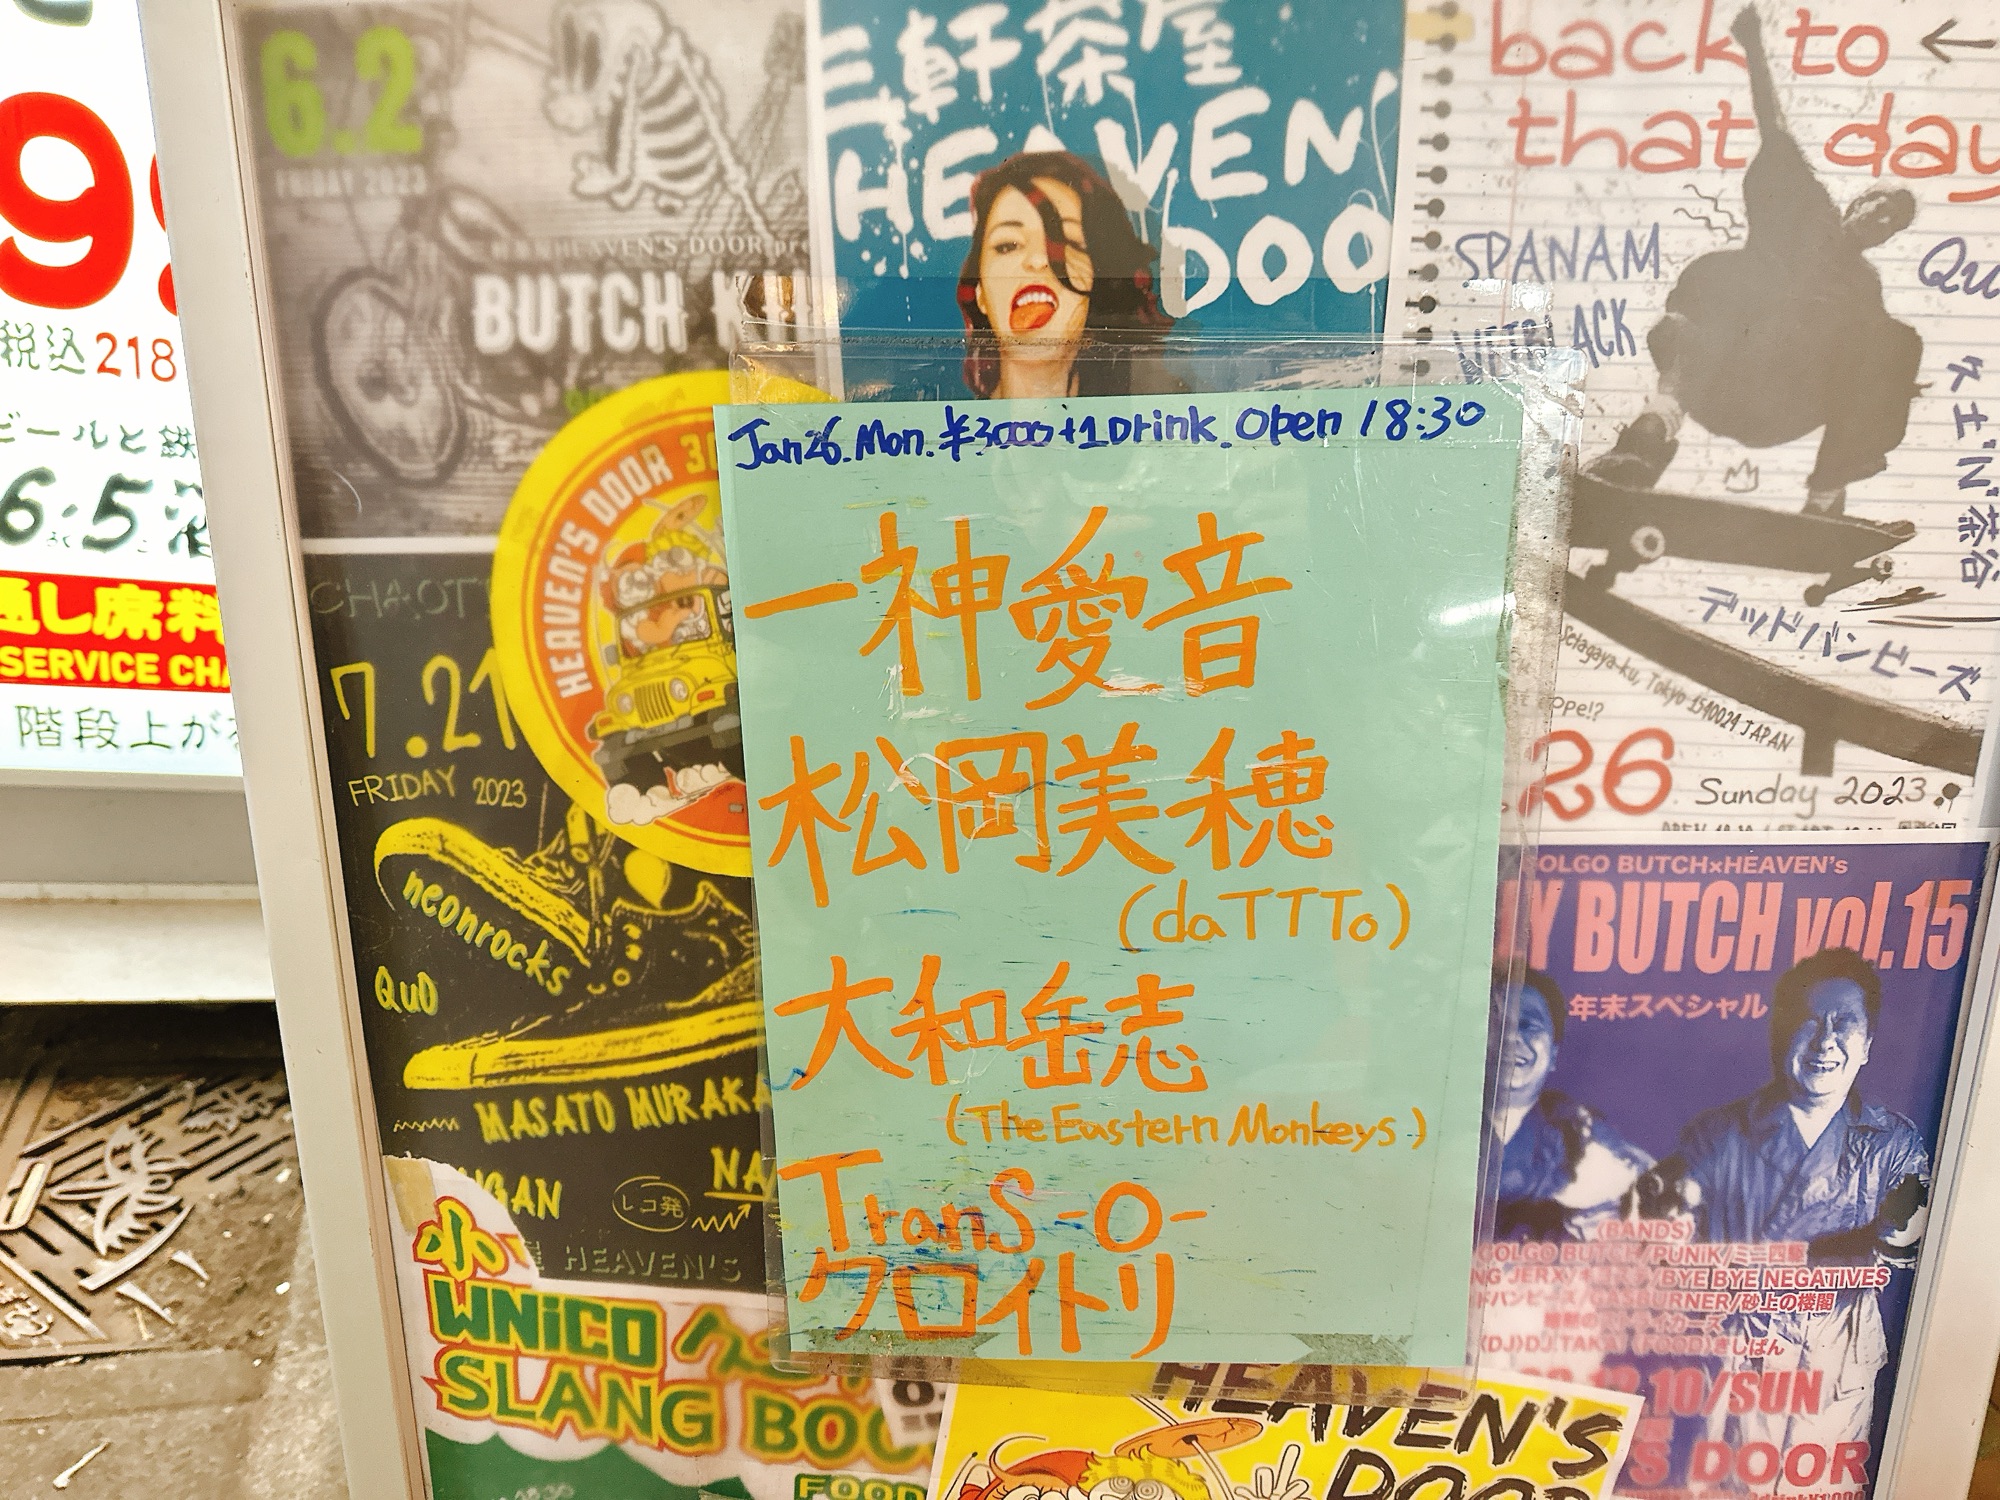 6.2
FRIDAY 2023
HEAVEN'S DOOR
BUTCH
三軒茶屋
HEAVEN'
DOO
back to ←
that day
SPANAM
ACK
デッドバンビーズ
Setagaya-ku, Tokyo 1540024 JAPAN
26
Sunday 2023.
税込218
ビールと
6.5
通し席料
SERVICE CHA
階段上が
7.21
FRIDAY 2023
HEAVEN'S DOOR 30
neonrocks
QuO
MASATO MURAKA
NGAN
レコ発
NA
HEAVEN'S
小
WNiCO
SLANG BOO
FOOD
Jan 26. Mon. ¥3000+1Drink. Open 18:30
一神愛音
松岡美穂
(daTTTo)
大和岳志
(The Eastern Monkeys)
TranS-O-
クロイトリ
GOLGO BUTCH×HEAVEN's
Y BUTCH vol.15
年末スペシャル
(BANDS)
GOLGO BUTCH/PUNiK/ミニ四駆
/BYE BYE NEGATIVES
/GASBURNER/砂上の楼閣
10/SUN
S DOOR
HEAVEN'S
DOOR